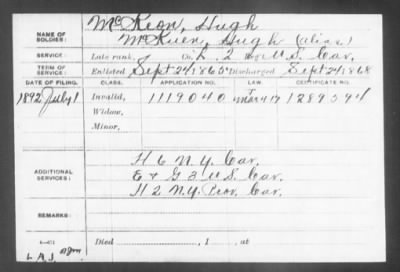 McKeon, Hugh
NAME OF SOLDIER:
McKuen, Hugh (alias)
SERVICE:
Late rank, Co. L, 2 Reg't U.S. Cav.
TERM OF SERVICE:
Enlisted Sept 24, 1865 Discharged Sept 24, 1868
DATE OF FILING. CLASS. APPLICATION NO. LAW. CERTIFICATE NO.
1892 July 1 Invalid, 1119040
Widow,
Minor,
ADDITIONAL SERVICES:
H 6 N.Y. Cav.
E & G 3 U.S. Cav.
H 2 N.Y. Prov. Cav.
REMARKS:
Died , 1 , at